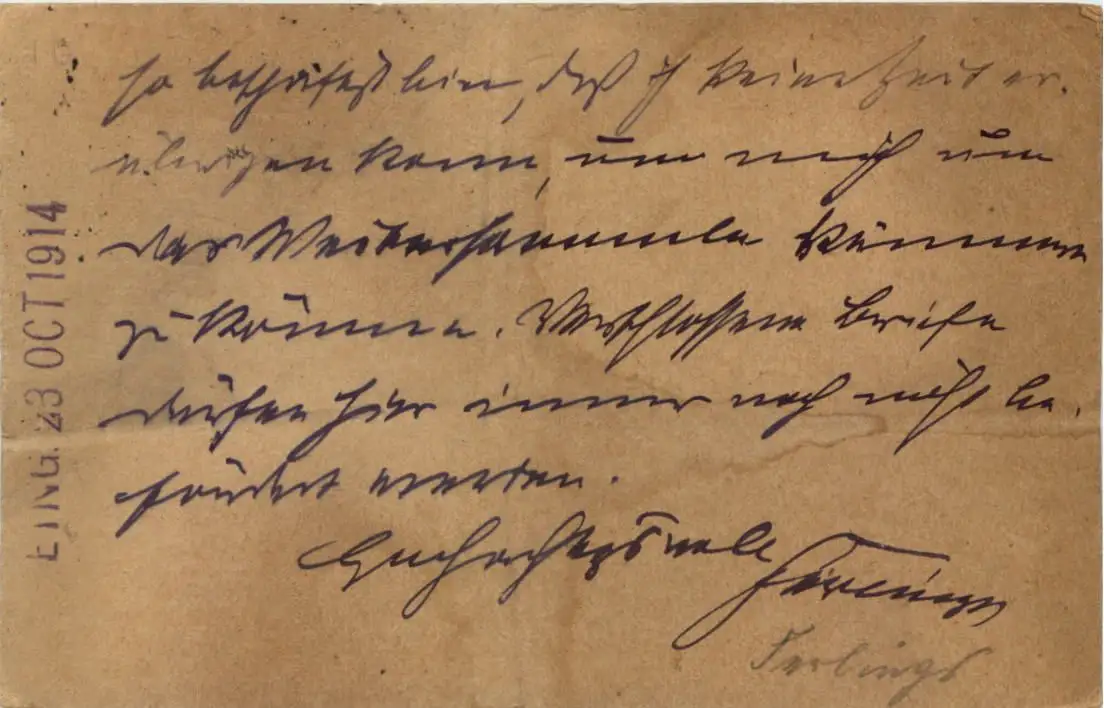 so beschäftigt bin, daß ich keine Zeit er-
übrigen kann, um mich um
das Weitersammeln kümmern
zu können. Verschlossene Briefe
dürfen hier immer noch nicht be-
fördert werden.
Hochachtungsvoll
Ferlings
Ferlings
EING. 23 OCT 1914